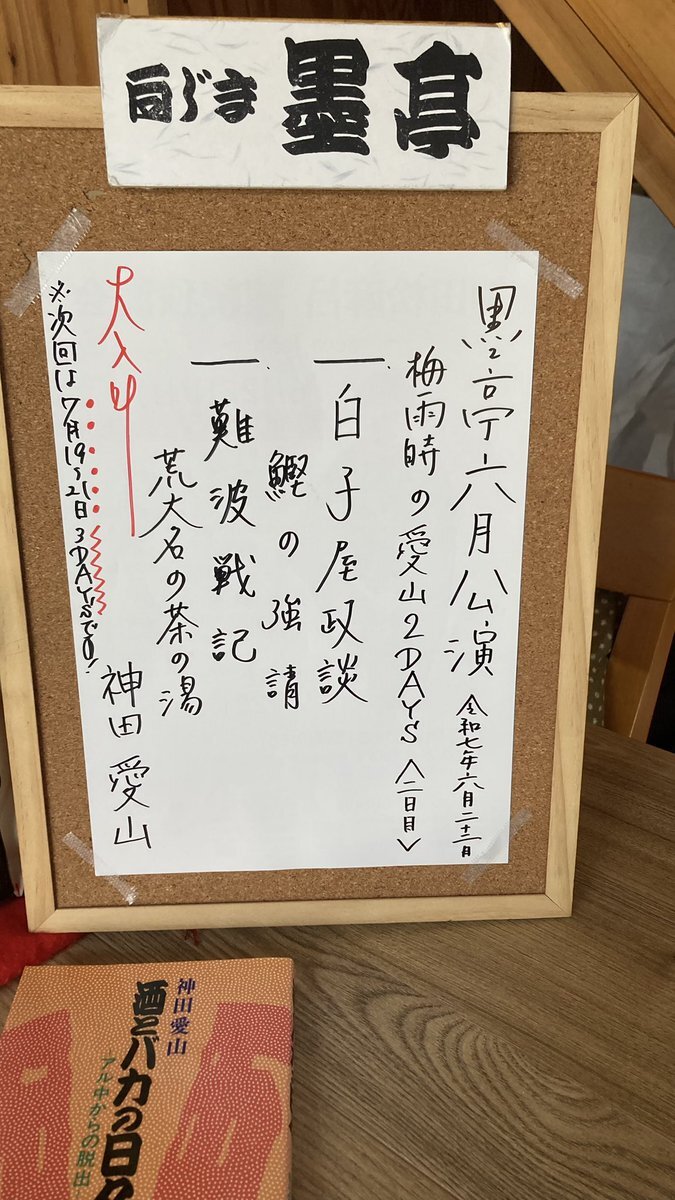 墨亭
墨亭六月公演 令和七年六月二十二日
梅雨時の愛山2DAYS〈二日目〉
一、白子屋政談
鰹の強請
一、難波戦記
荒大名の茶の湯
大入り
神田愛山
※次回は7月19〜21日3DAYSです!
神田愛山
酒とバカの日
アル中からの脱出